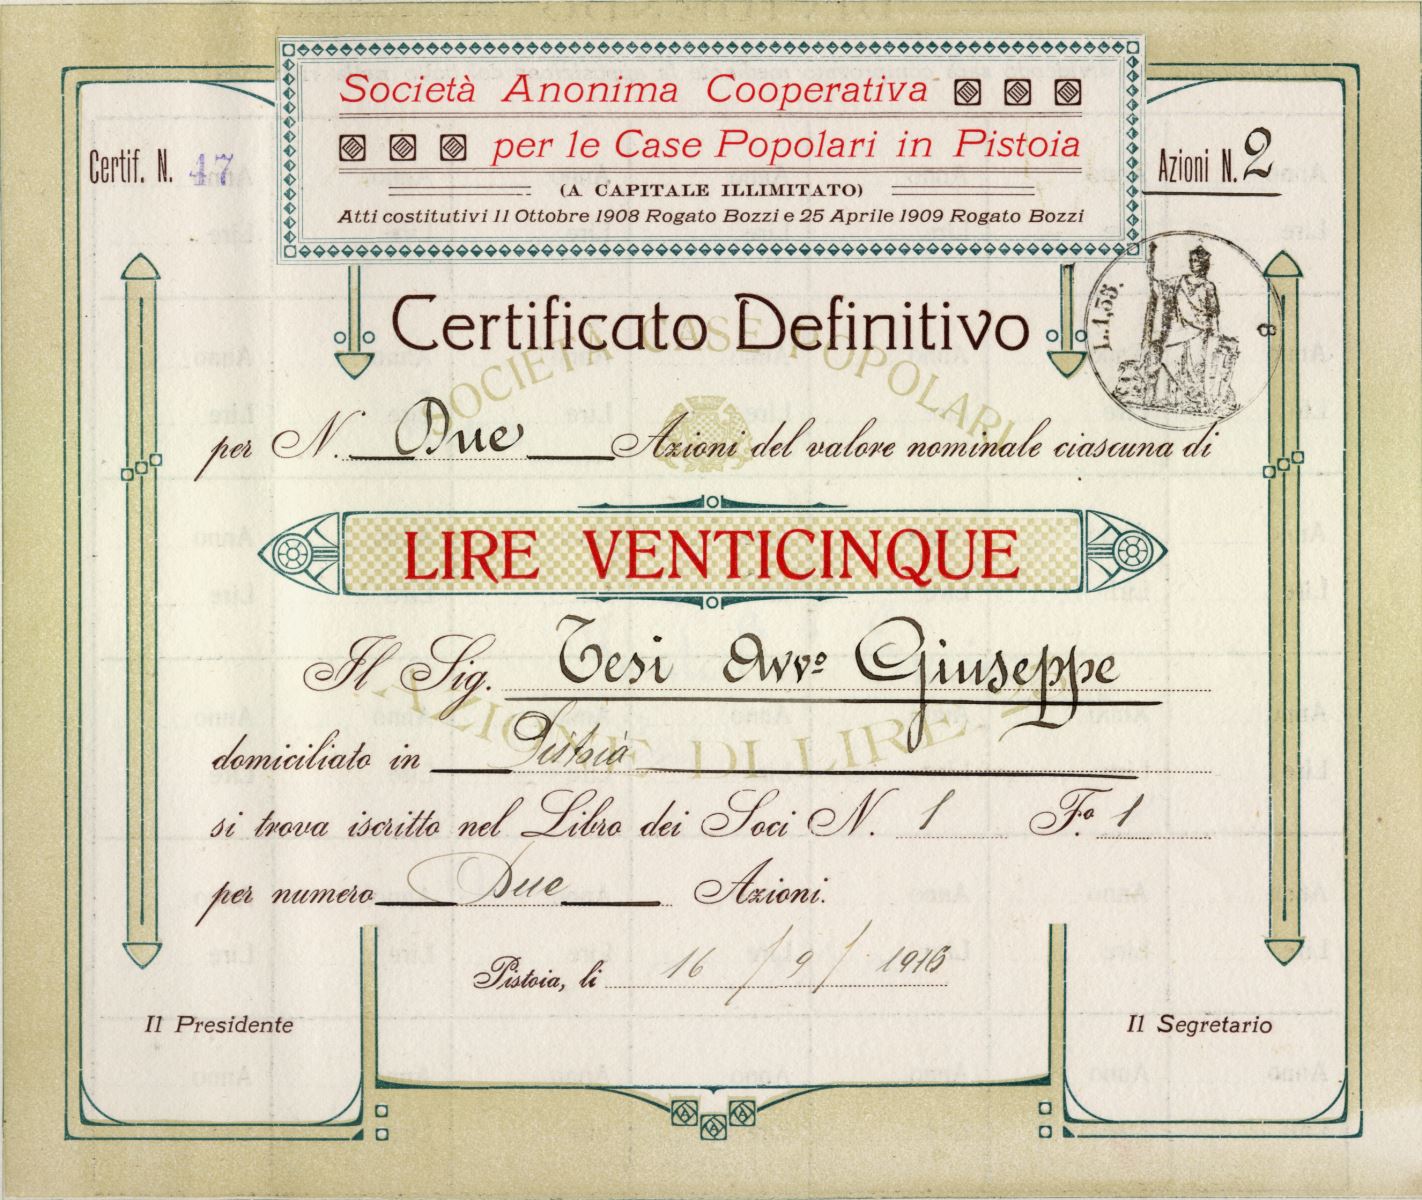 Società Anonima Cooperativa
per le Case Popolari in Pistoia
(A CAPITALE ILLIMITATO)
Atti costitutivi 11 Ottobre 1908 Rogato Bozzi e 25 Aprile 1909 Rogato Bozzi
Certif. N. 47
Azioni N. 2
L. 1,53.
8
Certificato Definitivo
SOCIETÀ CASE POPOLARI
per N. Due Azioni del valore nominale ciascuna di
LIRE VENTICINQUE
Il Sig. Tesi Avvo Giuseppe
AZIONE DI LIRE
domiciliato in Pistoia
si trova iscritto nel Libro dei Soci N. 1 F.o 1
per numero Due Azioni.
Pistoia, li 16 / 9 / 1916
Il Presidente
Il Segretario
A A A